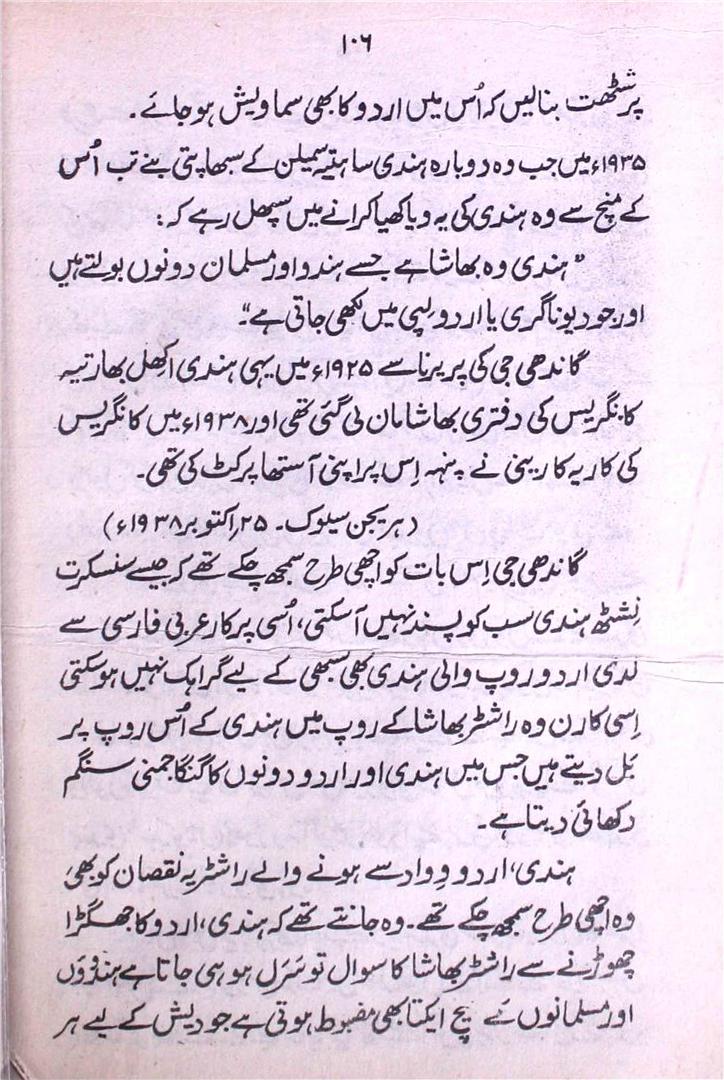 ۱۰۶
پرشٹھت بنالیں کہ اُس میں اردو کا بھی سماویش ہو جائے۔
۱۹۳۵ء میں جب وہ دوبارہ ہندی ساہتیہ سمیلن کے سبھاپتی بنے تب اُس
کے منچ سے وہ ہندی کی یہ ویاکھیا کرانے میں سپھل رہے کہ:
"ہندی وہ بھاشا ہے جسے ہندو اور مسلمان دونوں بولتے ہیں
اور جو دیوناگری یا اردو لپی میں لکھی جاتی ہے"۔
گاندھی جی کی پریرنا سے ۱۹۲۵ء میں یہی ہندی اکھل بھارتیہ
کانگریس کی دفتری بھاشا مان لی گئی تھی اور ۱۹۳۸ء میں کانگریس
کی کاریہ کارینی نے پنہہ اِس پر اپنی آستھا پرکٹ کی تھی۔
(ہریجن سیلوک۔ ۲۵؍اکتوبر ۱۹۳۸ء)
گاندھی جی اِس بات کو اچھی طرح سمجھ چکے تھے کہ جیسے سنسکرت
نِشٹھ ہندی سب کو پسند نہیں آ سکتی، اُسی پرکار عربی فارسی سے
لدی اردو روپ والی ہندی بھی سبھی کے لیے گراہک نہیں ہو سکتی
اِسی کارن وہ راشٹر بھاشا کے روپ میں ہندی کے اُس روپ پر
بَل دیتے ہیں جس میں ہندی اور اردو دونوں کا گنگا جمنی سنگم
دکھائی دیتا ہے۔
ہندی، اردو وِواد سے ہونے والے راشٹریہ نقصان کو بھی
وہ اچھی طرح سمجھ چکے تھے۔ وہ جانتے تھے کہ ہندی، اردو کا جھگڑا
چھوڑنے سے راشٹر بھاشا کا سوال تو سَرَل ہو ہی جاتا ہے ہندوؤں
اور مسلمانوں کے بیچ ایکتا بھی مضبوط ہوتی ہے جو دیش کے لیے ہر